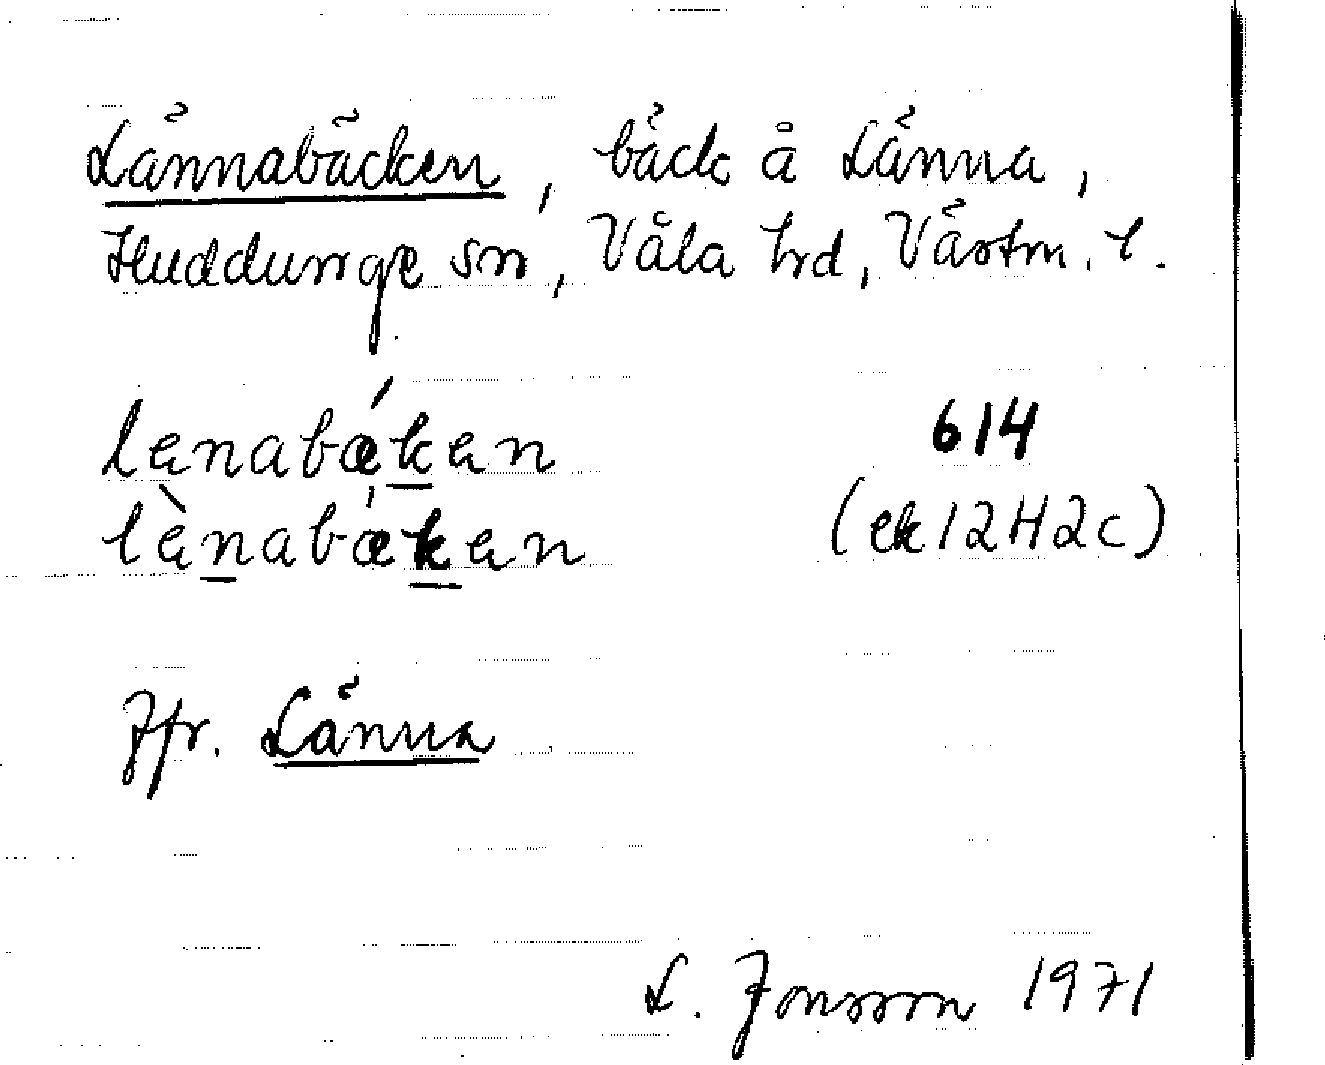 Lännabäcken, bäck å Länna,
Huddunge sn, Våla hrd, Västm. l.
lenabǽken 614
lènabæken (ek12H2c)
Jfr. Länna
L. Jonsson 1971